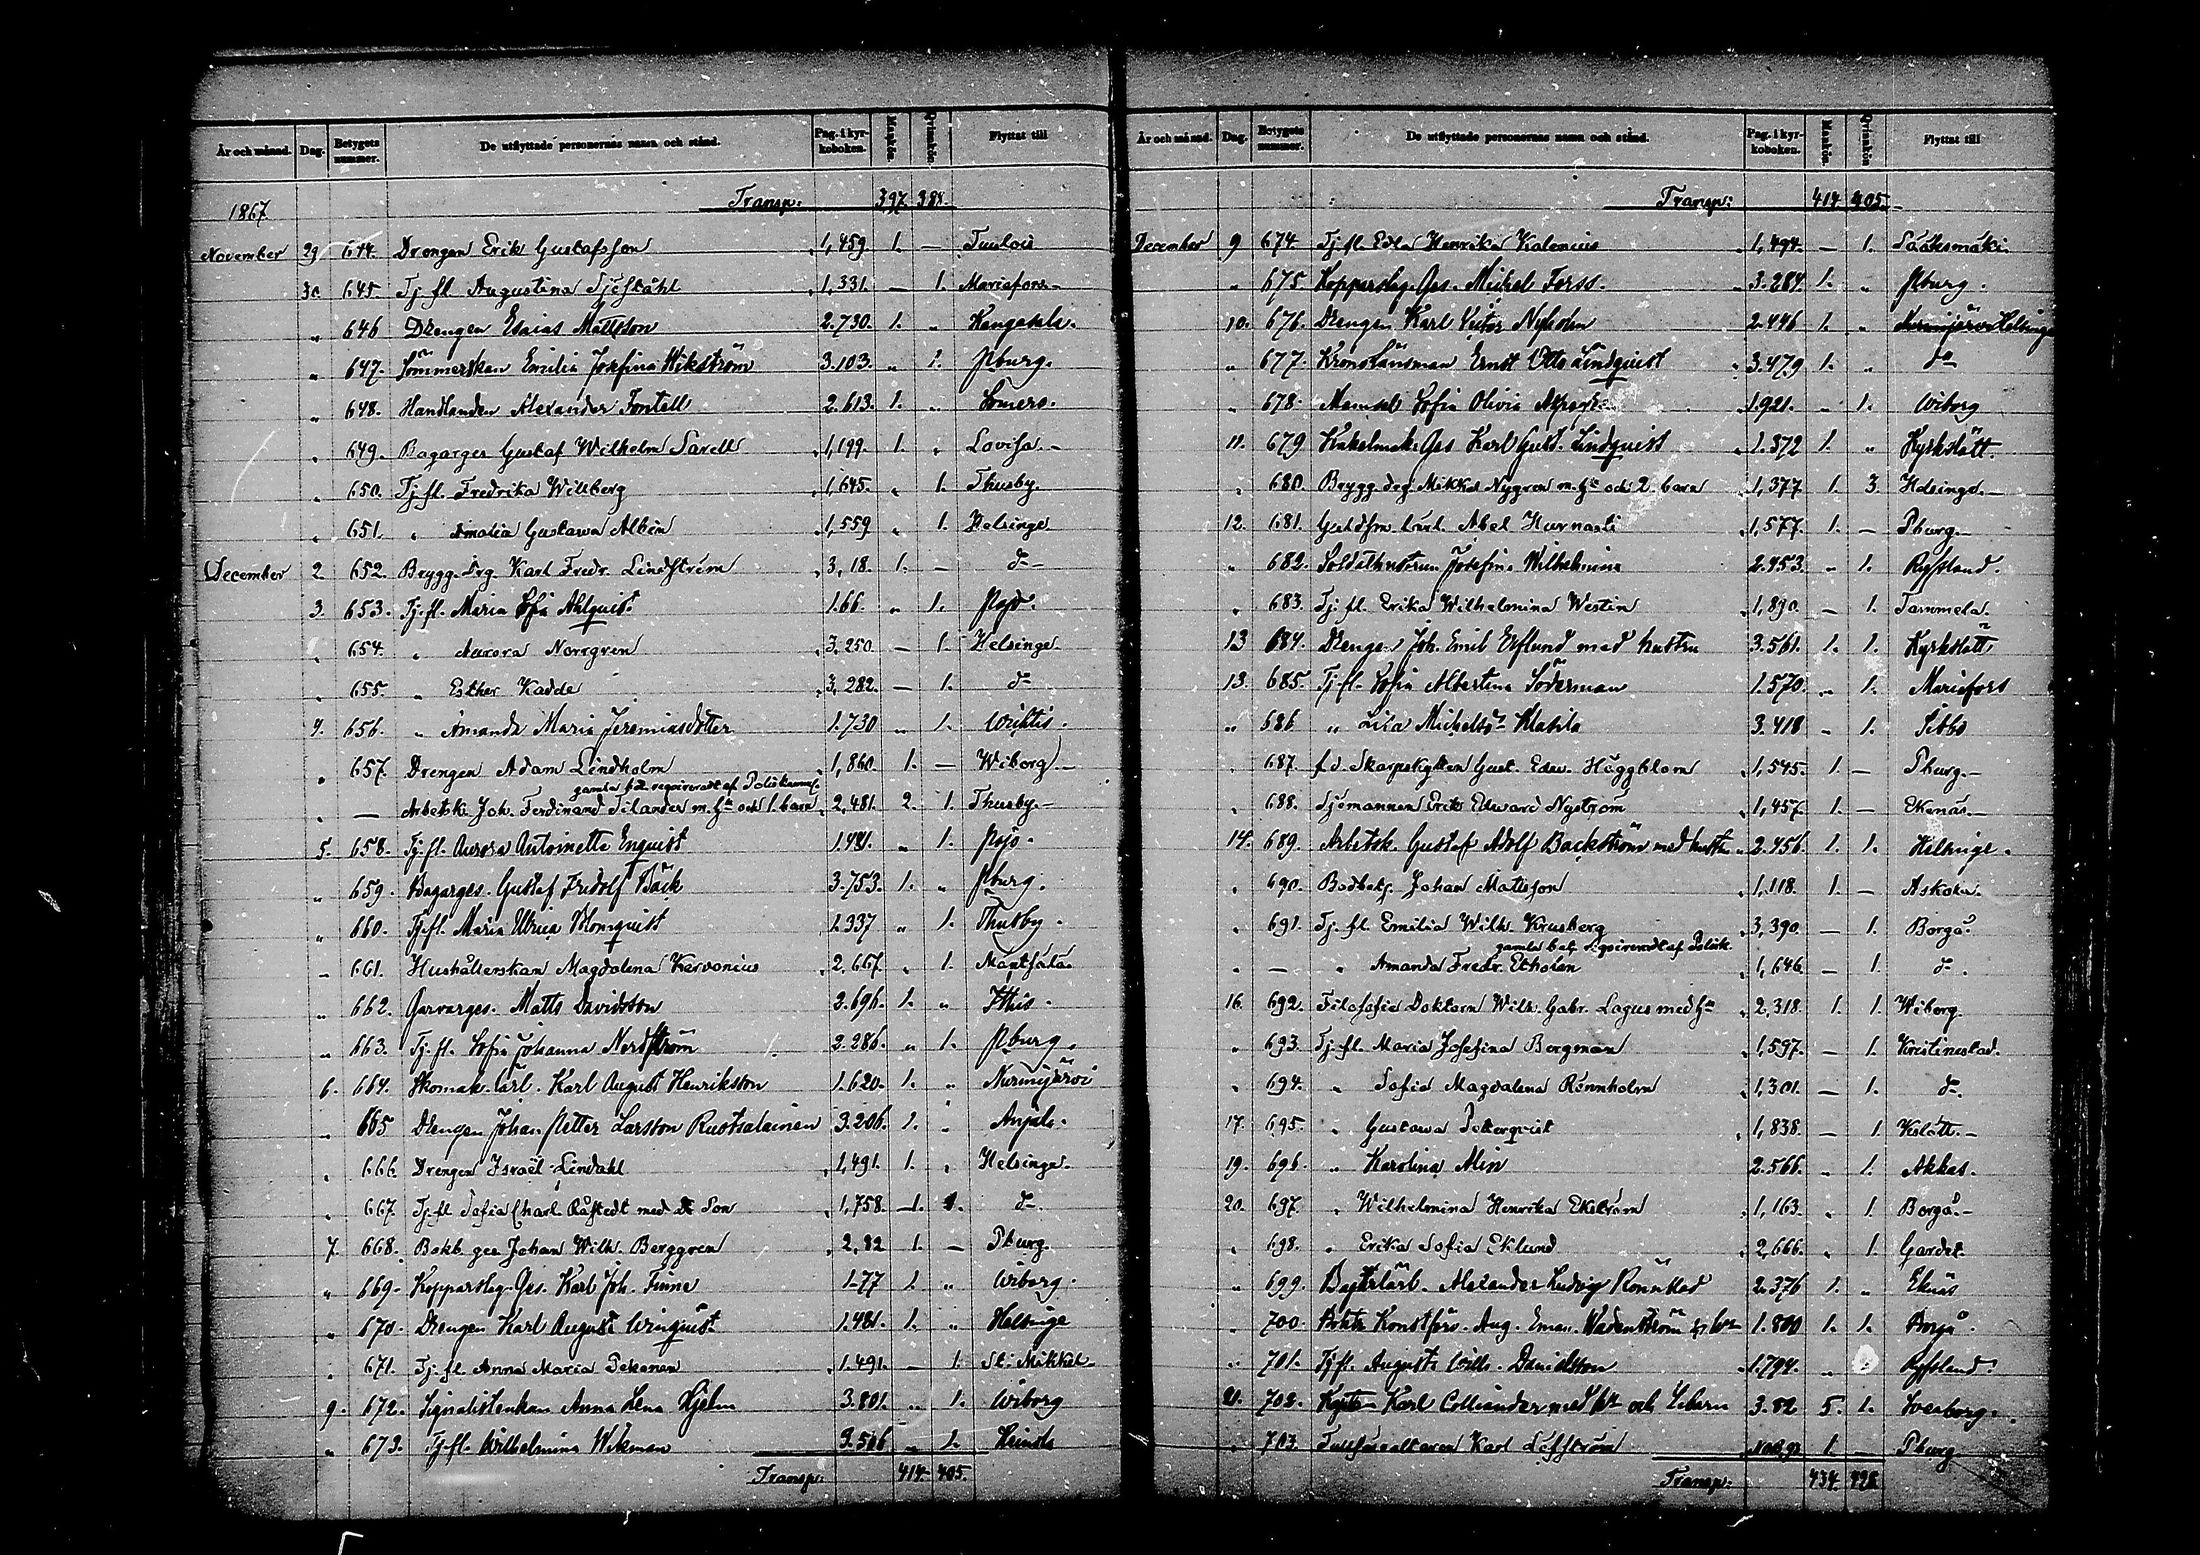 År och månad. Dag. Betygets nummer. De utflyttade personernas namn och stånd. Pag. i kyrkoboken. Mankön. Qvinnkön. Flyttat till
1867 Transp: 397. 388.
November 29 644. Drengen Erik Gustafsson 1,459. 1. — Tuulois
30 645. Tj. fl. Augustina Sjöståhl 1,331. — 1. Mariefors
" 646 Drengen Esaias Mattsson 2.730. 1. " Kangasala.
" 647. Sömmerskan Emilia Josefina Wikström 3.103. " 1. Pburg.
" 648. Handlanden Alexander Fontell 2.613. 1. " Somero.
" 649. Bagarges Gustaf Wilhelm Sarell 1,199. 1. " Lovisa.
" 650. Tj. fl. Fredrika Willberg 1,645. " 1. Thusby.
" 651. " Amalia Gustawa Albin 1,559 " 1. Helsinge
December 2. 652. Brygg. drg. Karl Fredr. Lindström 3,18. 1. — do
3. 653. Tj. fl. Maria Sofia Ahlquist 1.66. " 1. Pojo.
" 654. " Aurora Norrgren 3,250. — 1. Helsinge
" 655. " Esther Kadde 3,282. — 1. do
4. 656. " Amanda Maria Jeremiasdotter 1.730 " 1. Wichtis.
" 657. Drengen Adam Lindholm 1,860. 1. — Wiborg.
gamla
" — Arbetsk. Joh. Ferdinand Tilander m. hu och 1. barn 2,481. 2. 1. Thusby.
5. 658. Tj. fl. Aurora Antoinette Enquist 1.481. " 1. Pojo.
" 659. Bagarges. Gustaf Fridolf Bäck 3.753. 1. " Pburg.
" 660. Tj. fl. Maria Ulrica Blomquist 1.337 " 1. Thusby.
" 661. Hushållerskan Magdalena Kervonius 2,667. " 1. Mäntsälä.
" 662. Garvarges. Matts Davidsson 2.696. 1. " Ithis.
" 663. Tj. fl. Sofia Johanna Nordström 2.286. " 1. Pburg.
6. 664. Skomak. lärl. Karl August Henriksson 1.620. 1. " Nurmijärvi
" 665 Drengen Johan Petter Larsson Ruotsalainen 3.206. 1. " Anjala.
" 666. Drengen Israël Lindahl 1,491. 1. " Helsinge.
" 667. Tj. fl. Sofia Charl. Råstedt med Son 1,758. 1. 1. do
7. 668. Bokb. ges Johan Wilh. Berggren 2,82 1. — Pburg.
" 669. Kopparslag. Ges. Karl Joh. Finne 1.77 1. " Wiborg.
" 670. Drengen Karl August Winquist 1.481. 1. " Helsinge
" 671. Tj. fl. Anna Maria Pekonen 1.491. — 1. St: Mikkel
9. 672. Signalistenkan Anna Lena Hjelm 3.801. " 1. Wiborg
" 673. Tj. fl. Wilhelmina Wikman 3.506 " 1. Heinola
Transp: 414. 405.
År och månad. Dag. Betygets nummer. De utflyttade personernas namn och stånd. Pag. i kyrkoboken. Mankön. Qvinnkön Flyttat till
Transp: 414 405.
December 9 674. Tj. fl. Edla Henrika Kalenius 1,494. — 1. Sääksmäki.
" 675 Kopparslag. Ges. Michel Forss. 3.284 1. " Pburg.
10. 676. Drengen Karl Victor Nyholm 2.446 1. " Helsinge
" 677. Kronolänsman Ernst Otto Lindquist 3.479 1. " do
" 678. Mamsell Sofia Olivia 1.921. " 1. Wiborg
11. 679 Kakelmak. Ges Karl Gust. Lindquist 1.372 1. " Kyrkslätt.
" 680. Brygg. drg. Mikkel Nygren m. hu och 2. barn 1,377. 1. 3. Helsinge.
12. 681. Guldsm. lärl. Abel Hurnasti 1,577. 1. — Pburg.
" 682. Soldathustrun Josefina Wilhelmina 2.453. " 1. Ryssland.
" 683. Tj. fl. Erika Wilhelmina Westin 1,890. — 1. Tammela.
13 684. Drengen Joh. Emil Eklund med hustru 3.561. 1. 1. Kyrkslätt
13. 685. Tj. fl. Sofia Albertina Söderman 1.570. " 1. Mariefors
" 686 " Lisa Michelsdr Mattila 3.418 " 1. Sibbo
" 687. f.d. Skarpskytten Gust. Edw. Häggblom 1,545. 1. — Pburg.
" 688. Sjömannen Erik Edward Nyström 1,457. 1. — Ekenäs.
14. 689. Arbetsk. Gustaf Adolf Backström med hustru 2.456 1. 1. Helsinge.
" 690. Bodbetj. Johan Mattsson 1,118. 1. — Askola.
" 691. Tj. fl. Emilia Wilh. Krusberg 3,390. — 1. Borgå.
gamla
" — " Amanda Fredr. Etholen 1,646 — 1. do
16. 692. Filosofie Doktorn Wilh. Gabr. Lagus med hu 2,318. 1. 1. Wiborg.
" 693. Tj. fl. Maria Josefina Bergman 1,597. — 1. Kristinestad.
" 694. " Sofia Magdalena Rönnholm 1,301. — 1. do
17. 695. " Gustawa Petterqvist 1,838. — 1. Kslätt.
19. 696. " Karolina Alin 2.566. " 1. Akkas.
20. 697. " Wilhelmina Henrika Ekström 1,163. " 1. Borgå.
" 698. " Erika Sofia Eklund 2,666. " 1. Gardet.
" 699. Alexander Ludvig Rönnblad 2.376 1. " Eknäs
" 700. Konstförv. Aug. Eman. Wadenström 1.800 1. 1. Borgå.
" 701. Tj. fl. Augusta Wilh. Danielsson 1.794. " Ryssland.
21. 702. Karl Colliander med hu och barn 3.82. 5. 1. Sveaborg.
" 703. Karl Löfström 1. — Pburg
Transp: 434. 428.